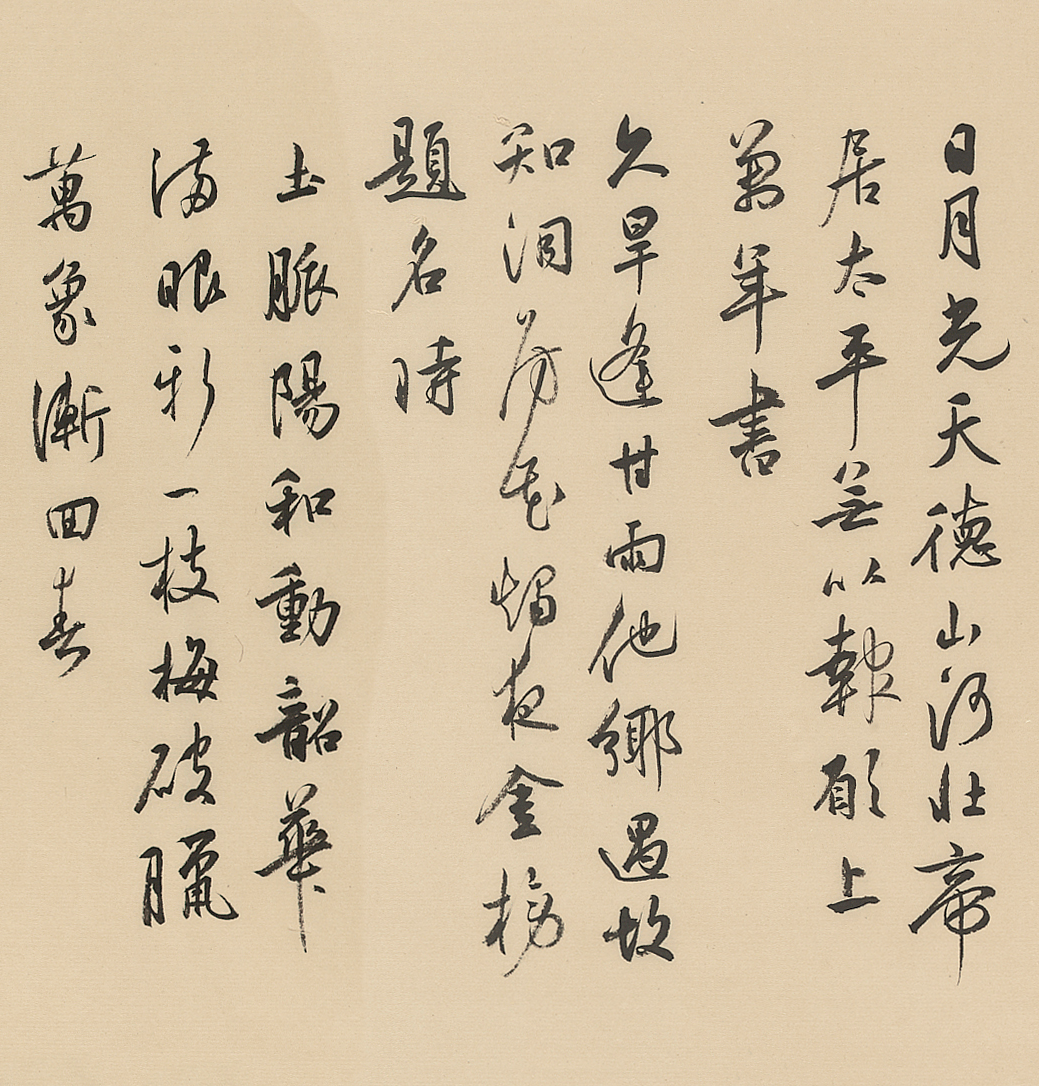 日月光天德山河壯帝
居太平無以報願上
萬年書
久旱逢甘雨他鄉遇故
知洞房花燭夜金榜
題名時
土脈陽和動韶華
滿眼新一枝梅破臘
萬象漸回春